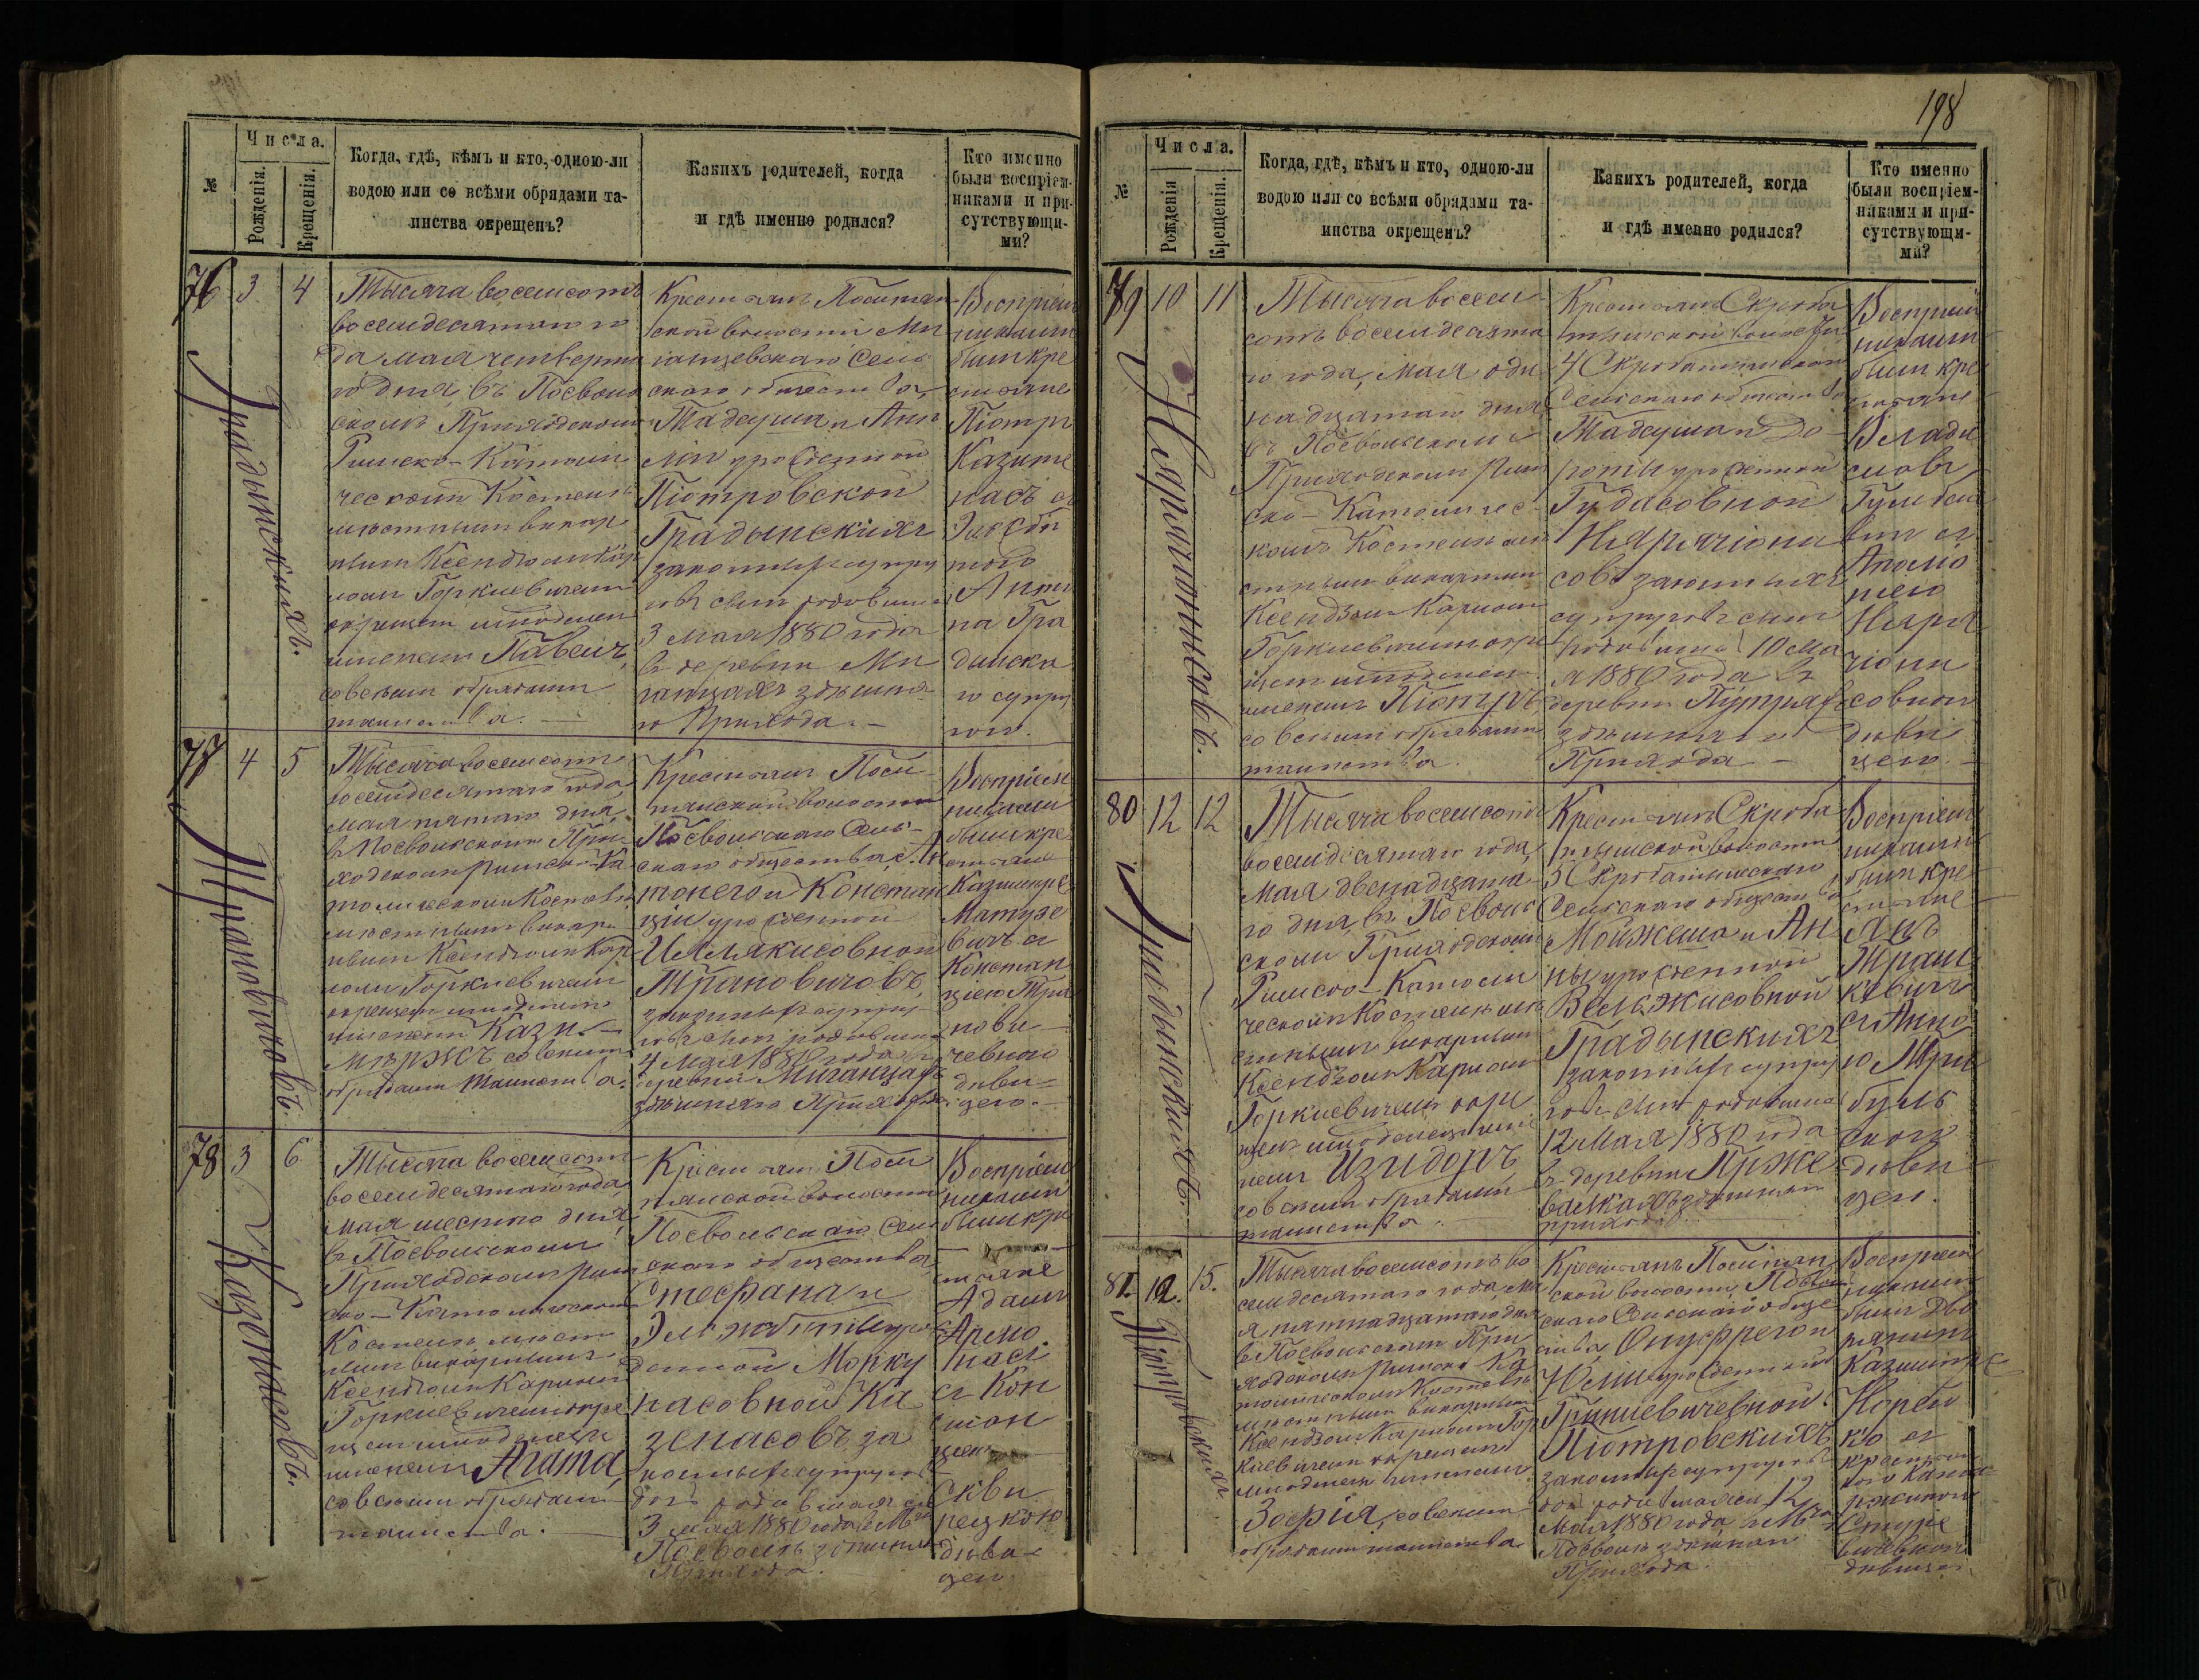 198
№
Числа.
Рожденія.
Крещенія.
Когда, гдѣ, кѣмъ и кто, одною-ли
водою или со всѣми обрядами та-
инства окрещенъ?
Какихъ родителей, когда
и гдѣ именно родился?
Кто именно
были воспріем-
никами и при-
сутствующи-
ми?
76
3
4
Градынскихъ.
Тысяча восемсотъ
восемдесятаго го
да мая четверта
го дня, въ Посволь
скомъ Приходскомъ
Римско-Католи
ческомъ Костелѣ
мѣстнымъ викар
нымъ Ксендзомъ Кар
ломъ Горкиевичемъ
окрещенъ младенецъ
именемъ Павелъ,
со всѣми обрядами
таинства.
Крестьянъ Поситян
ской волости Ми
ганцевскаго Сель
скаго общества,
Тадеуша и Ане
ли урожденной
Піотровской
Градынскихъ
законныхъ супру
говъ сынъ родовши
3 мая 1880 года
въ деревни Ми
ганцахъ здѣшня
го Прихода.
Воспріем
никами
были кре
стьяне
Піотръ
Казите
насъ съ
Элжбѣ
тою
Анто
на Гра
динска
го супру
гою.
77
4
5
Триновичовъ.
Тысяча восемсотъ
восемдесятаго года,
мая пятаго дня,
въ Посвольскомъ При
ходскомъ Римско-Ка
толическомъ Костелѣ
мѣстнымъ викар
нымъ Ксендзомъ Кар
ломъ Горкиевичемъ
окрещенъ младенецъ
именемъ Кази-
мѣржъ со всѣми
обрядами таинства.
Крестьянъ Поси-
тянской волости
Посвольскаго Сель-
скаго общества, Ан
тонего и Констан
ціи урожденной
Шлякисовной
Триновичовъ,
законныхъ супру
говъ сынъ родовши
4 мая 1880 года въ
деревни Миганцахъ
здѣшняго Прихода.
Воспріем
никами
были кре
стьяне
Казимиръ
Матуле
вичъ съ
Констан
ціею Три
нови-
чевною
дѣви-
цею.
78
3
6
Казенасовъ.
Тысяча восемсотъ
восемдесятаго года,
мая шестого дня,
въ Посвольскомъ
Приходскомъ Рим
ско-Католическомъ
Костелѣ мѣст
нымъ викарнымъ
Ксендзомъ Карломъ
Горкиевичемъ окре
щенъ младенецъ
именемъ Агата,
со всѣми обрядами
таинства.
Крестьянъ Поси
тянской волости
Посвольскаго Сель
скаго общества,
Стефана и
Элжбѣты уро
жденной Морку
насовной Ка
зенасовъ за
конныхъ супру
говъ родившаяся
3 мая 1880 года в Мѣст.
Посволь здѣшня
Прихода.
Воспріем
никами
были кре
стьяне
Адамъ
съ Кон
стан
ціею
Скви
рецкою
дѣви-
цею.
№
Числа.
Рожденія
Крещенія.
Когда, гдѣ, кѣмъ и кто, одною-ли
водою или со всѣми обрядами та-
инства окрещенъ?
Какихъ родителей, когда
и гдѣ именно родился?
Кто именно
были воспріем-
никами и при-
сутствующи-
ми?
79
10
11
Нярачіонисовъ.
Тысяча восем
сотъ восемдесята
го года, мая оди
надцатаго дня
въ Посвольскомъ
Приходскомъ Рим
ско-Католичес-
комъ Костелѣ мѣ
стнымъ викарным
Ксендзомъ Карломъ
Горкиевичемъ окре
щенъ младенецъ
именемъ Піотръ
со всѣми обрядами
таинства.
Крестьянъ Скроба
тышской волости
4 Скробатышскаго
Сельскаго общества
Тадеуша и До-
роты урожденной
Гудасовной
Нярачіони
совъ законныхъ
супруговъ сынъ
родовши 10 ма
я 1880 года въ
деревни Путрахъ
здѣшняго
Прихода
Воспріем
никами
были кре
стьяне
Влади
славъ
Гумбеле
вич съ
Аполо
ніею
Няра
чіони
совною
дѣви
цею.
80
12
12
Градынскихъ.
Тысяча восемсотъ
восемдесятаго года,
мая двенадцата-
го дня, въ Посволь
скомъ Приходскомъ
Римско-Католи
ческомъ Костелѣ мѣ
стнымъ викарнымъ
Ксендзомъ Карломъ
Горкиевичемъ окре
щенъ младенецъ име
немъ Изидоръ
со всѣми обрядами
таинства.
Крестьянъ Скроба
тышской волости
5 Скробатышскаго
Сельскаго общества
Мойжеша и Ан
ны урожденной
Велѣжисовной
Градынскихъ
законныхъ супру
говъ сынъ родовши
12 мая 1880 года
въ деревни Прже
валкахъ здѣшняго
прихода.
Воспріем
никами
были кре-
стьяне
Янъ
Траш
кевичъ
съ Анно
ю Тры
буль
скою
дѣви-
цею.
81.
12.
15.
Піотровскихъ
Тысяча восемсотъ во
семдесятаго года, ма
я пятнадцатаго дня
въ Посвольскомъ При
ходскомъ Римско-Ка
толическомъ Костелѣ
мѣстнымъ викарнымъ
Ксендзомъ Карломъ Гор
киевичемъ окрещенъ
младенецъ именемъ
Зофія, со всѣми
обрядами таинства
Крестьянъ Поситян
ской волости, Посволь
скаго Сельскаго обще
ства, Онуфрего и
Юліи урожденной
Гринцевичевной
Піотровскихъ
законныхъ супруговъ
дочь родившаяся 12
мая 1880 года в Мѣст.
Посволь здѣшняго
Прихода.
Воспріем
никами
были дво
ряниnъ
Казимиръ
Корей
ко съ
дѣвицею